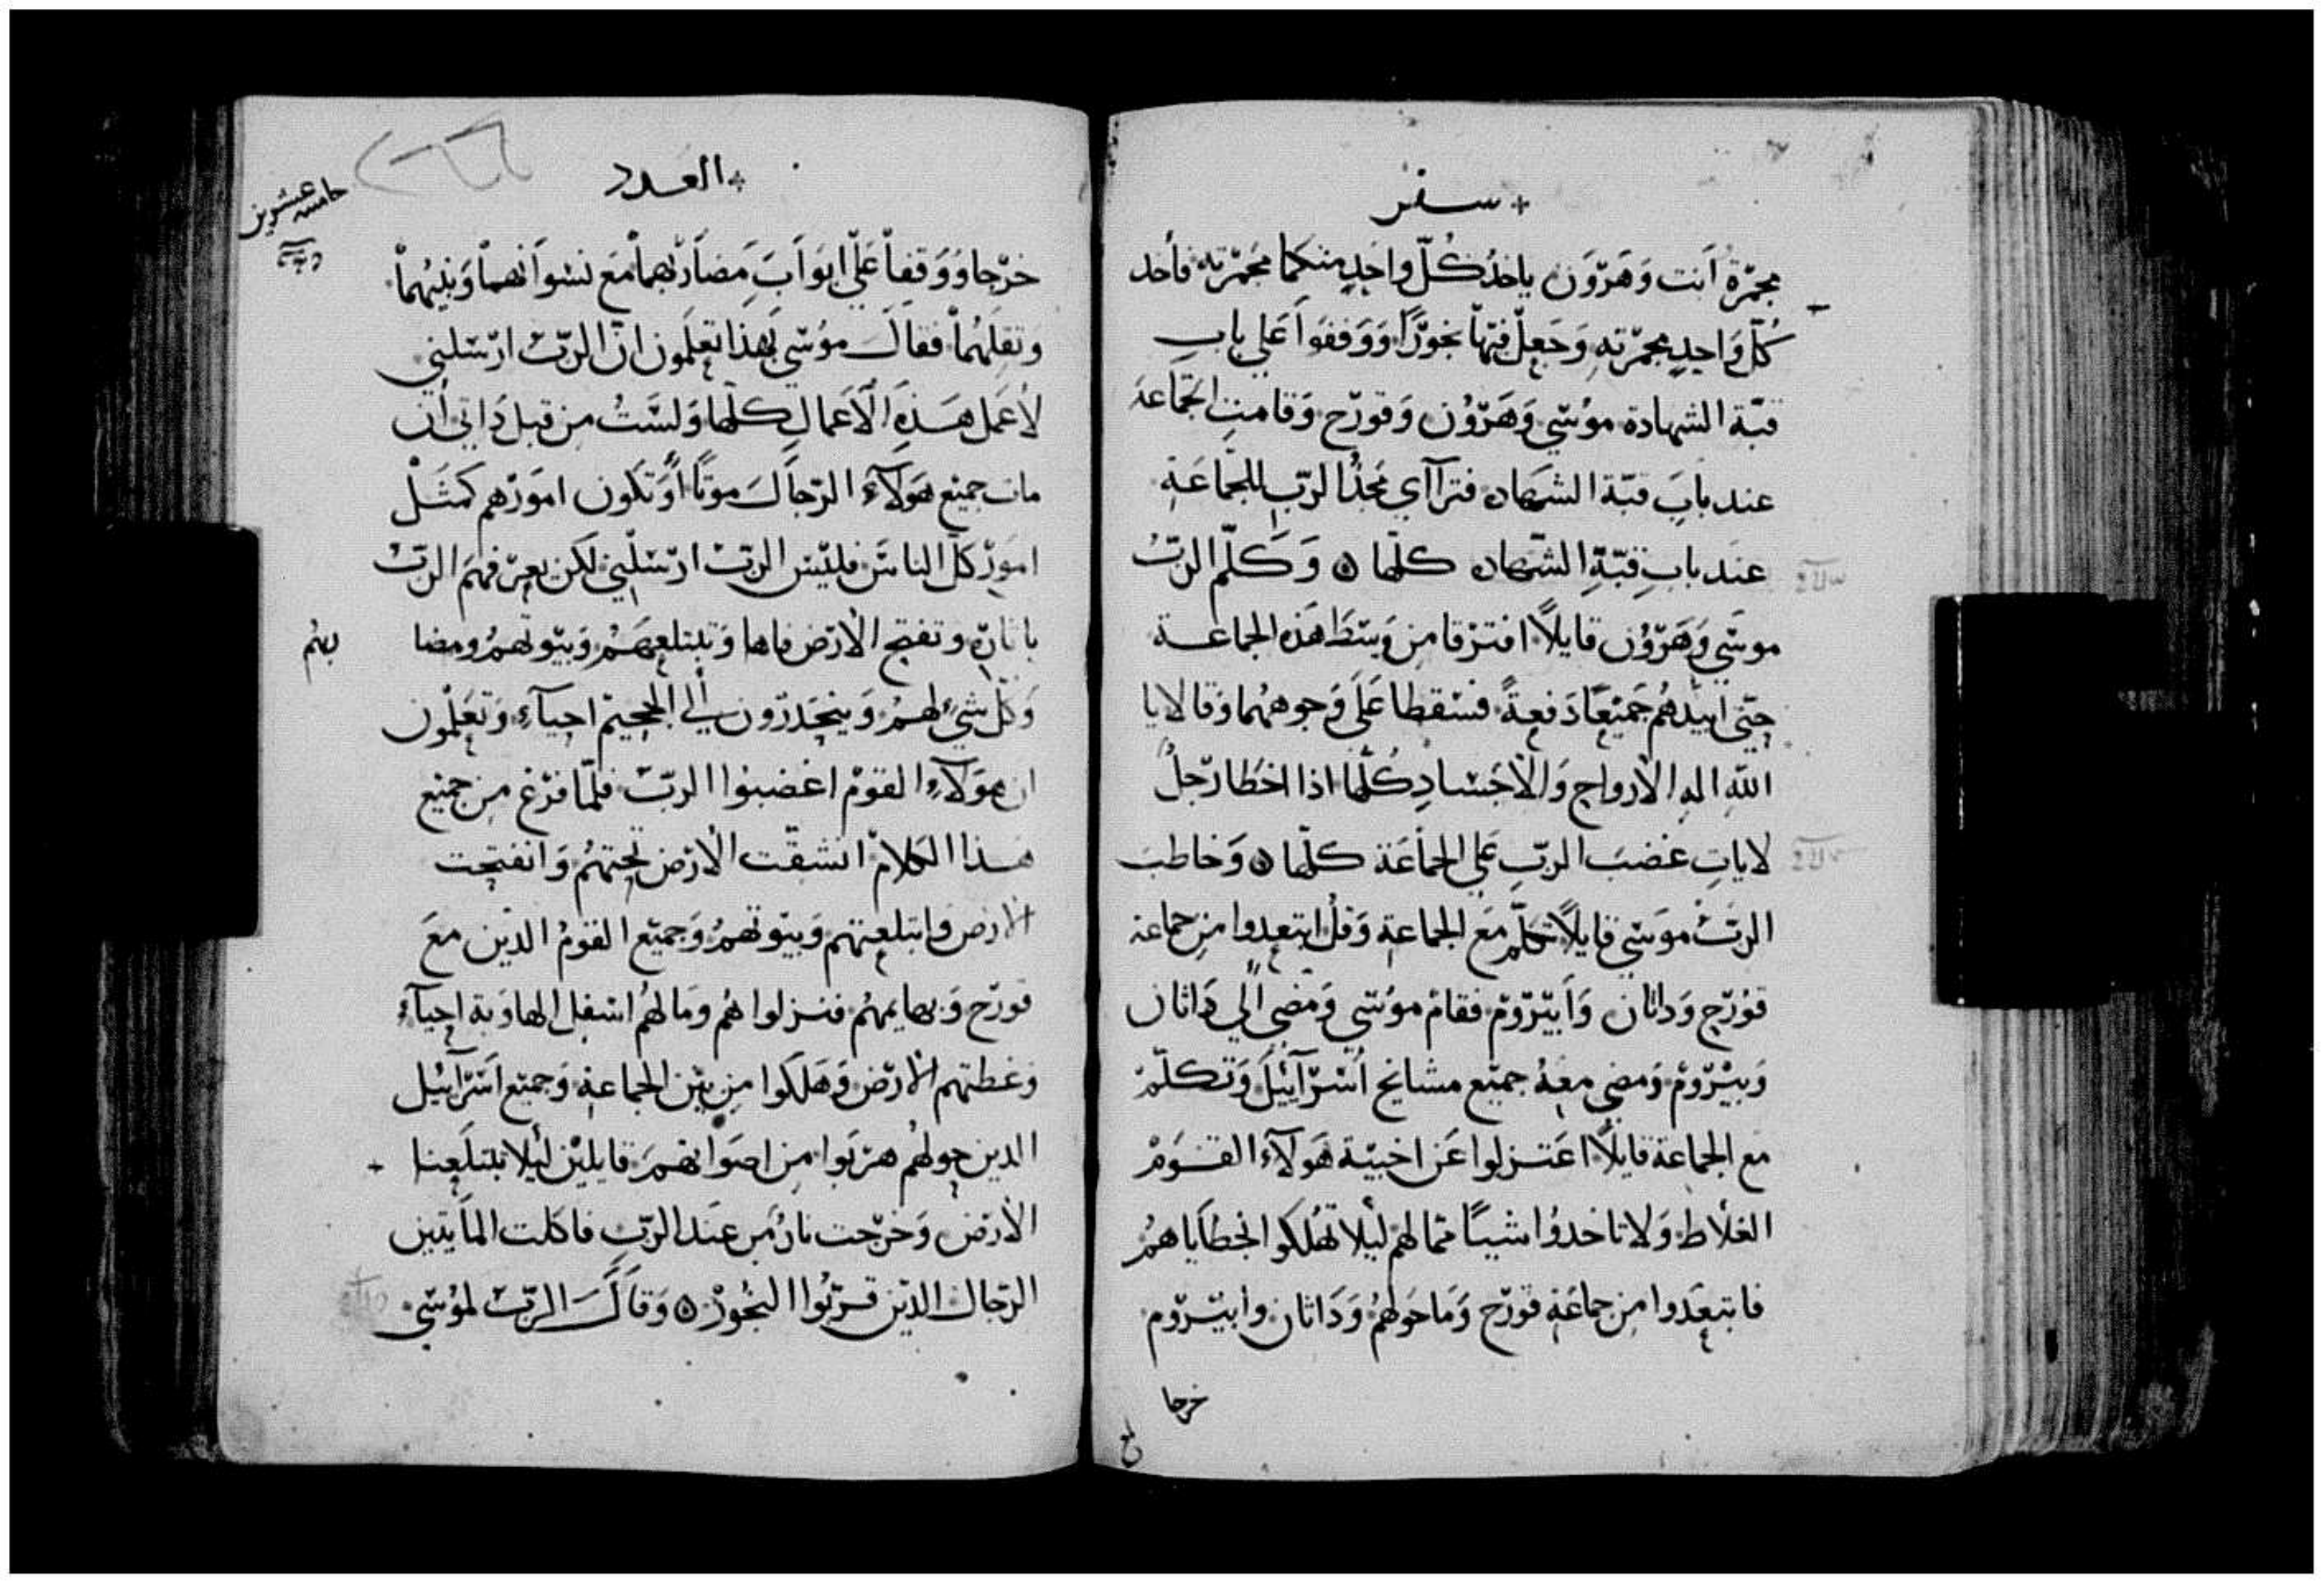 سفر
مجمرة أنت وهرون ياخذ كل واحد منكما مجمرته فأخد
كل واحد مجمرته وجعل فيها بخورًا ووقفوا على باب
قبة الشهادة موسي وهرون وقورح وقامت الجماعة
عند باب قبة الشهاده فترآاي مجد الرب للجماعة
عند باب قبة الشهاده كلها ۞ وكلم الرب
موسي وهرون قايلاً افترقا من وسط هذه الجماعة
حتى ابيدهم جميعًا دفعةً فسقطا على وجوههما وقالا يا
الله اله الأرواح والأجساد كلها اذا اخطا رجل
لايات غضب الرب على الجماعة كلها ۞ وخاطب
الرب موسي قايلاً تكلم مع الجماعة وقل ابتعدوا من جماعة
قورح وداثان وأبيروم فقام موسي ومضى إلي داثان
وبيروم ومضي معه جميع مشايخ أسرآئيل وتكلم
مع الجماعة قايلاً اعتزلوا عن اخبية هولآء القوم
الغلاظ ولا تاخدوا شيئًا مما لهم ليلا تهلكوا بخطاياهم
فابتعدوا من جماعة قورح وما حولهم وداثان وابيروم
خرجا
العدد
خامسه عشرين
خرجا ووقفا على ابواب مضاربهما مع نسوانهما وبنيهما
وثقلهما فقال موسي بهذا تعلمون انّ الرب ارسلني
لأعمل هذه الأعمال كلها ولست من قبل ذاتي أن
مات جميع هولآء الرجال موتًا أو تكون امورهم كمثل
امور كل الناس فليس الرب ارسلني لكن يعرفهم الرب
باثاره وتفتح الأرض فاها وتبتلعهم وبيوتهم ومضا
بهم
وكل شيء لهم وينحدرون إلي الجحيم احيآء وتعلمون
ان هولآء القوم اغضبوا الرب فلما فرغ من جميع
هذا الكلام انشقت الأرض تحتهم وانفتحت
الأرض وابتلعتهم وبيوتهم وجميع القوم الذين مع
قورح وبهايمهم فنزلوا هم وما لهم اسفل الهاوية احيآء
وغطتهم الأرض وهلكوا من بين الجماعة وجميع اسرآئيل
الدين حولهم هربوا من اصواتهم قايلين ليلا تبتلعنا
الأرض وخرجت نار من عند الرب فاكلت المأيتين
الرجال الدين قربوا البخور ۞ وقال الرب لموسي